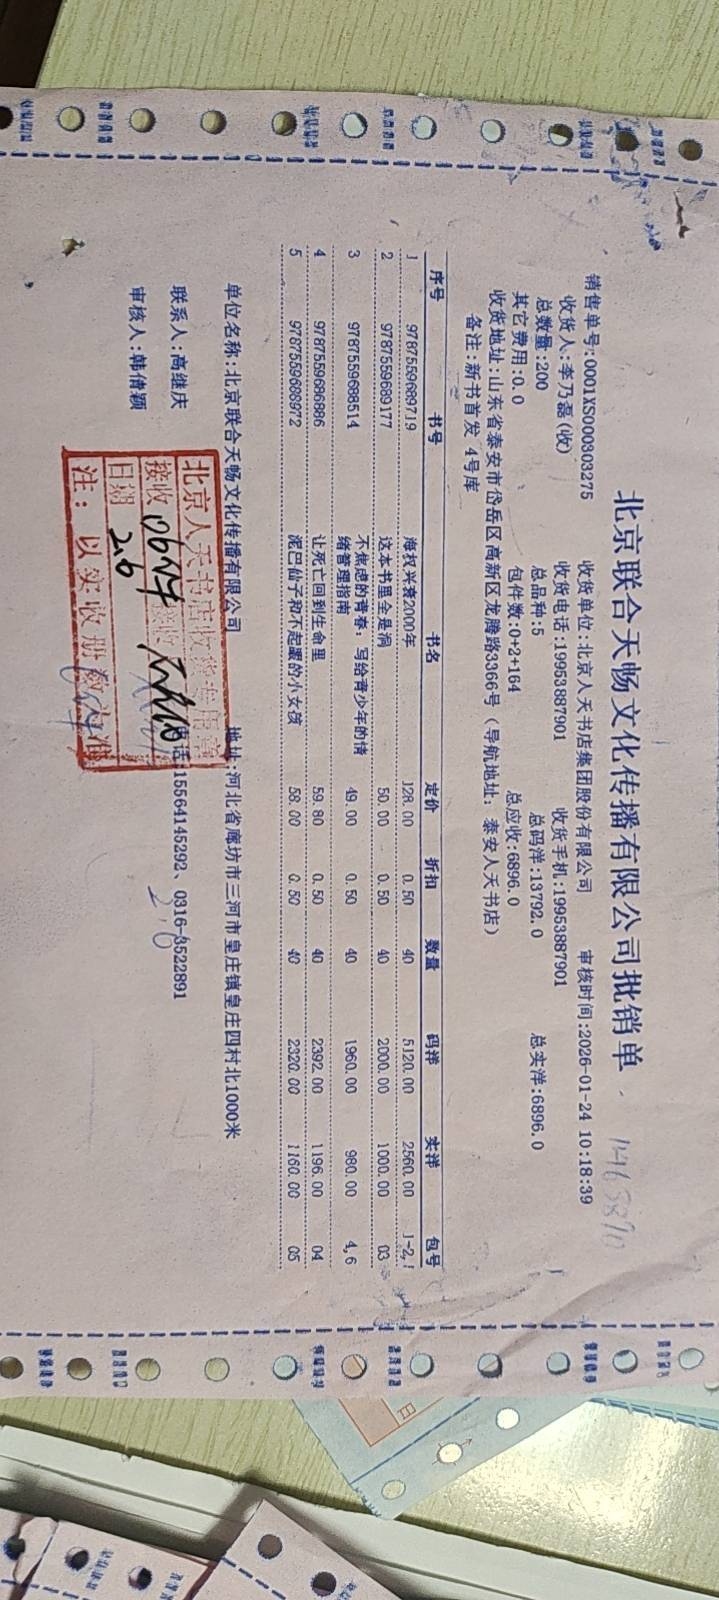 北京联合天畅文化传播有限公司批销单
1463870
销售单号:0001XS000303275 收货单位:北京人天书店集团股份有限公司 审核时间:2026-01-24 10:18:39
收货人:李乃磊(收) 收货电话:19953887901 收货手机:19953887901
总数量:200 总品种:5 总码洋:13792.0 总实洋:6896.0
其它费用:0.0 包件数:0+2+164 总应收:6896.0
收货地址:山东省泰安市岱岳区高新区龙腾路3366号(导航地址:泰安人天书店)
备注:新书首发 4号库
序号 书号 书名 定价 折扣 数量 码洋 实洋 包号
1 9787559689719 海权兴衰2000年 128.00 0.50 40 5120.00 2560.00 1-2,
2 9787559689177 这本书里全是洞 50.00 0.50 40 2000.00 1000.00 03
3 9787559688514 不焦虑的青春:写给青少年的情绪管理指南 49.00 0.50 40 1960.00 980.00 4,6
4 9787559686886 让死亡回到生命里 59.80 0.50 40 2392.00 1196.00 04
5 9787559688972 泥巴仙子和不起眼的小女孩 58.00 0.50 40 2320.00 1160.00 05
单位名称:北京联合天畅文化传播有限公司 地址:河北省廊坊市三河市皇庄镇皇庄四村北1000米
联系人:高继庆 电话:15564145292、0316-3522891
审核人:韩倩颖
北京人天书店收货专用章
接收
日期 2.6
注:以实收册数为准
2.6